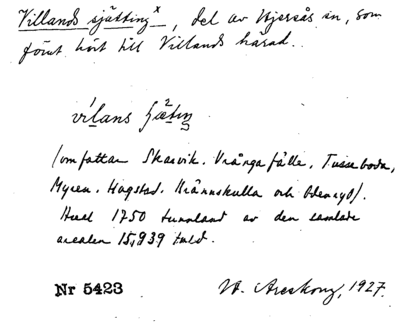 Villands sjätting x, del av Hjersås sn, som
förut hört till Villands härad.
omfattar Skarvik, Vrångafälle, Tussboda,
Myren, Hagstad, Brännskulla och Odersyd).
Hual 1750 tunnland av den samlade
arealen 15,939 tnld.
Nr 5423
W. Areskoug, 1927.